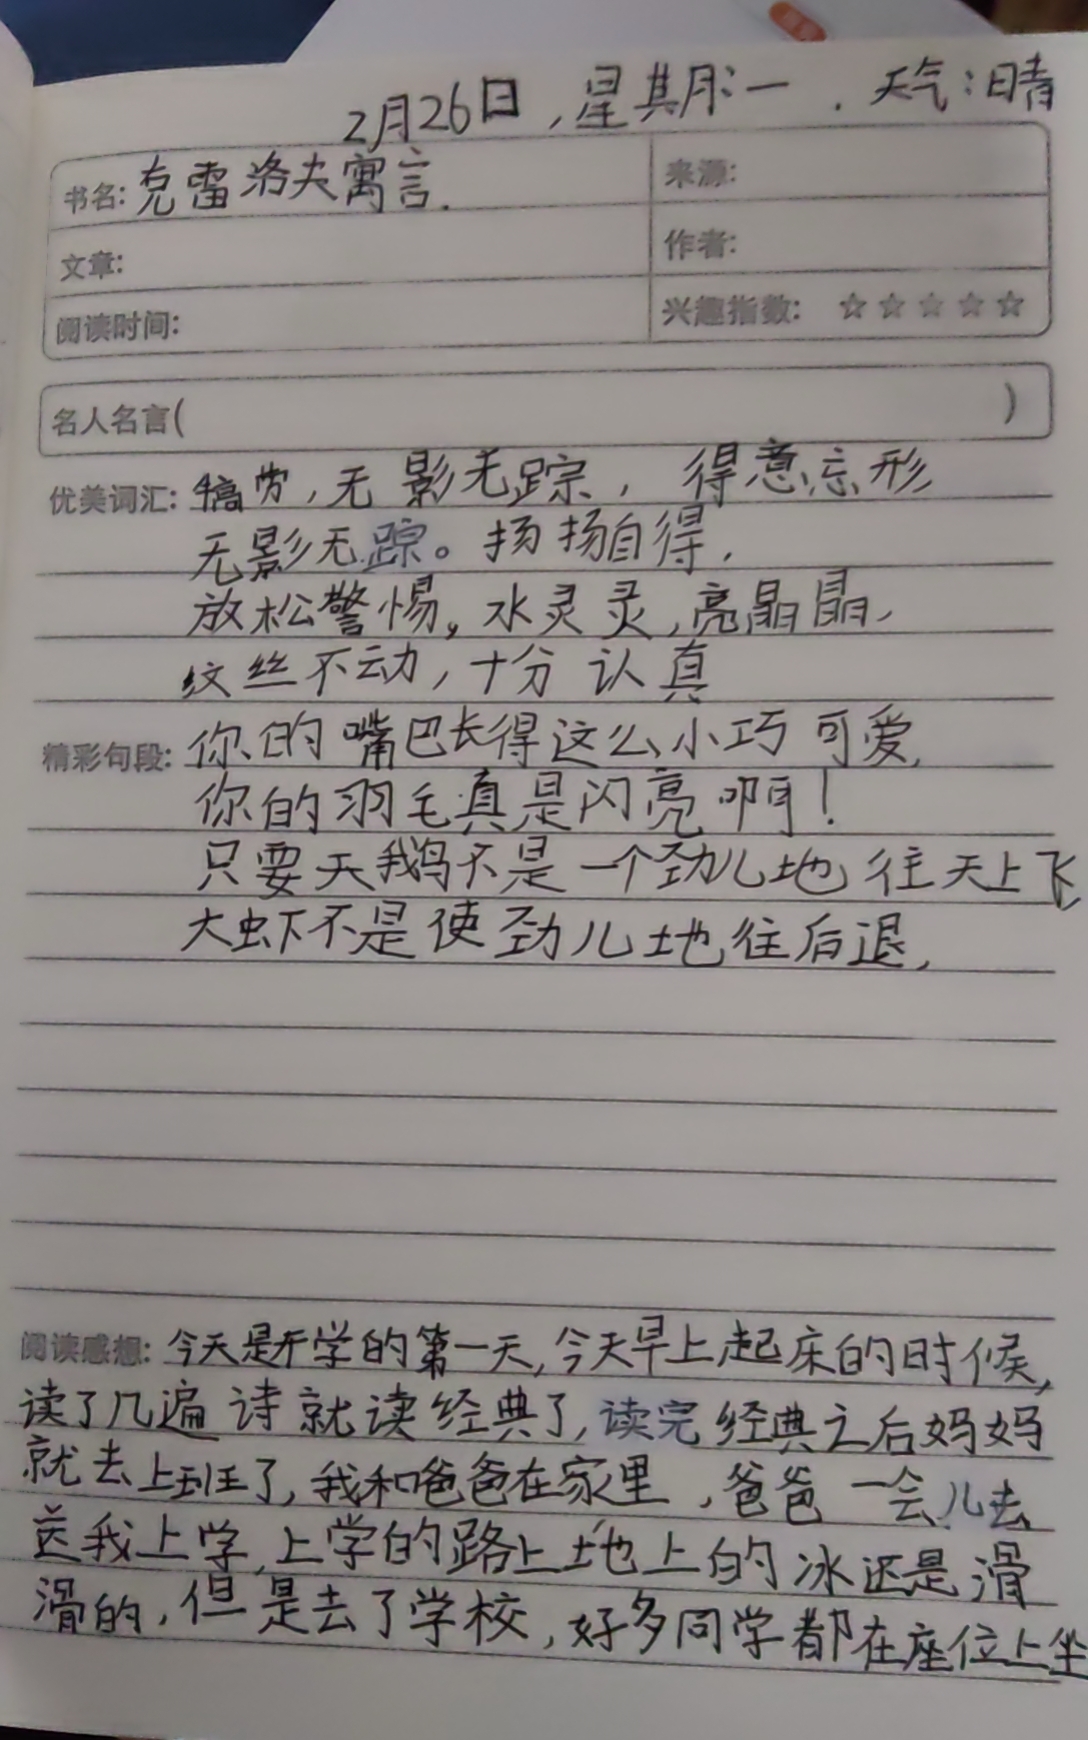 2月26日,星期一.天气:晴
书名:克雷洛夫寓言.
来源:
文章:
作者:
阅读时间:
兴趣指数:☆☆☆☆☆
名人名言( )
优美词汇:犒劳,无影无踪,得意忘形
无影无踪。扬扬自得,
放松警惕,水灵灵,亮晶晶,
纹丝不动,十分认真
精彩句段:你的嘴巴长得这么小巧可爱,
你的羽毛真是闪亮啊!
只要天鹅不是一个劲儿地往天上飞
大虾不是使劲儿地往后退,
阅读感想:今天是开学的第一天,今天早上起床的时候,
读了几遍诗就读经典了,读完经典之后妈妈
就去上班了,我和爸爸在家里,爸爸一会儿去
送我上学,上学的路上地上的冰还是滑
滑的,但是去了学校,好多同学都在座位上坐